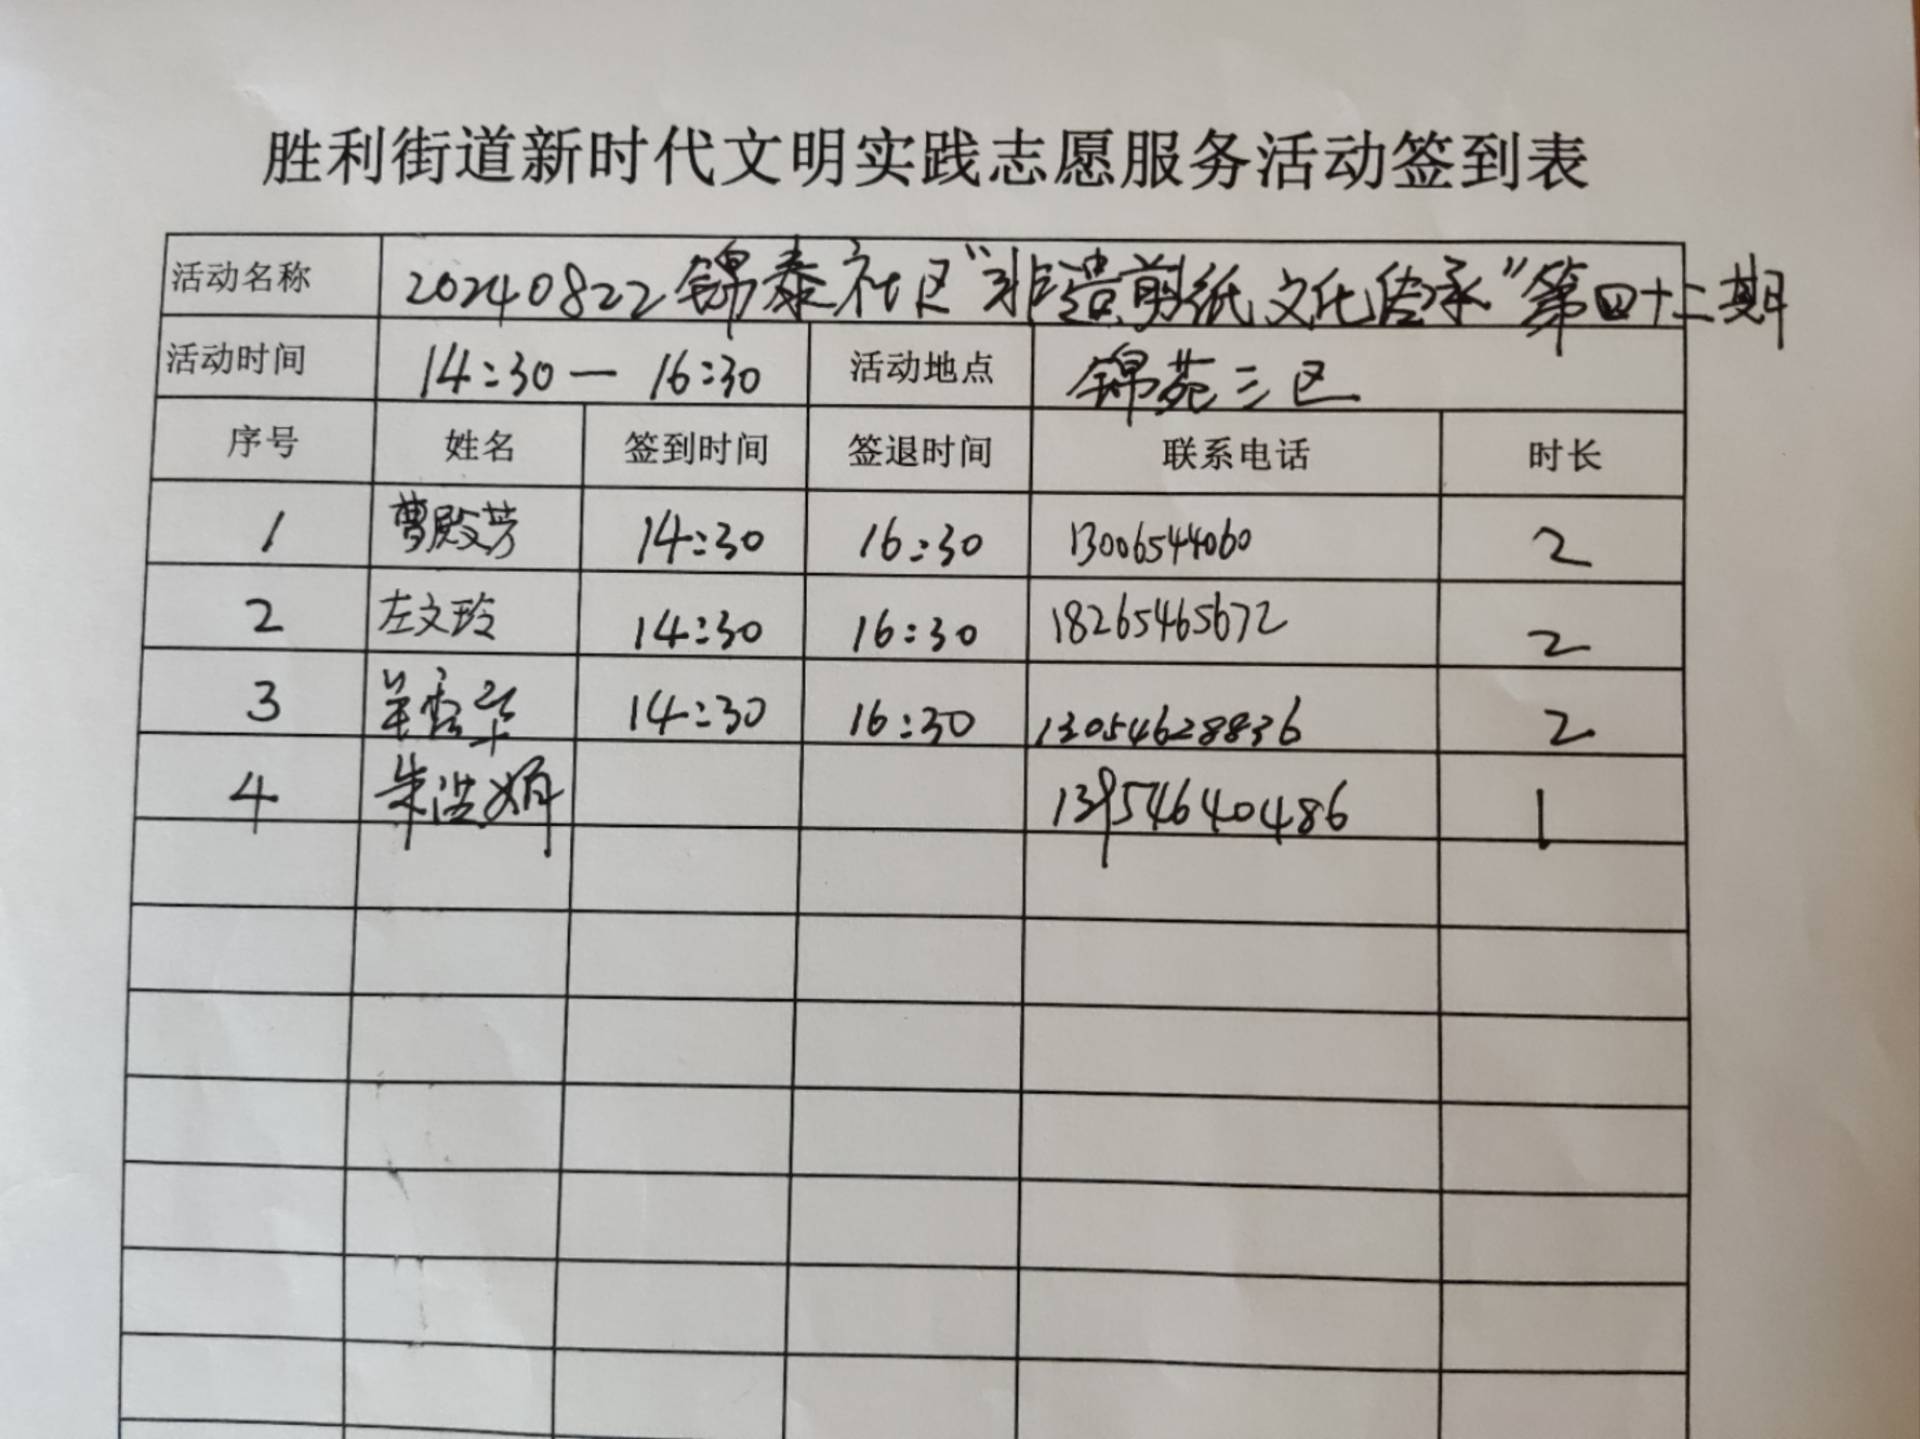 胜利街道新时代文明实践志愿服务活动签到表
活动名称 20240822锦泰社区“非遗剪纸文化传承”第四十二期
活动时间 14:30 — 16:30 活动地点 锦苑三区
序号 姓名 签到时间 签退时间 联系电话 时长
1 曹殿芳 14:30 16:30 13006544060 2
2 左文玲 14:30 16:30 18265465672 2
3 14:30 16:30 13054628836 2
4 朱洪娟 13954640486 1